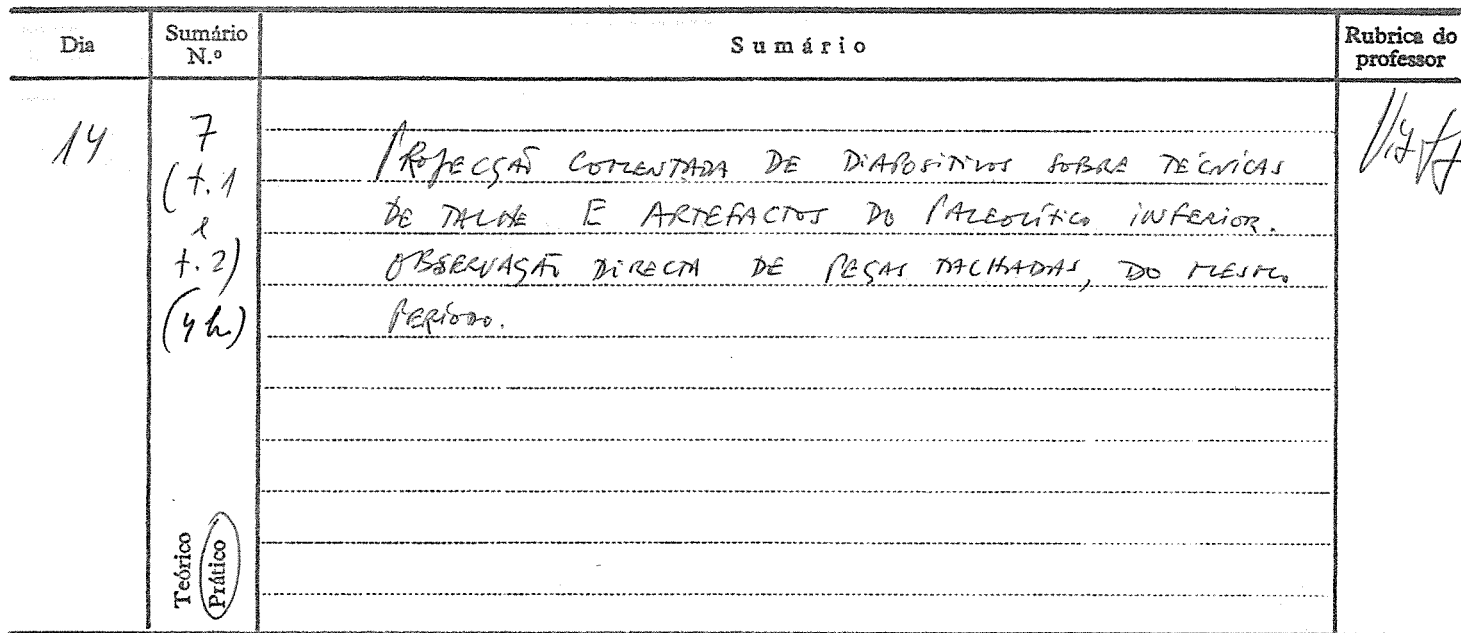 Dia
Sumário N.º
Sumário
Rubrica do professor
14
7
(t.1
e
t.2)
(4 h)
PROJECÇÃO COMENTADA DE DIAPOSITIVOS SOBRE TÉCNICAS
DE TALHE E ARTEFACTOS DO PALEOLÍTICO INFERIOR.
OBSERVAÇÃO DIRECTA DE PEÇAS TALHADAS, DO MESMO
PERÍODO.
Teórico
Prático